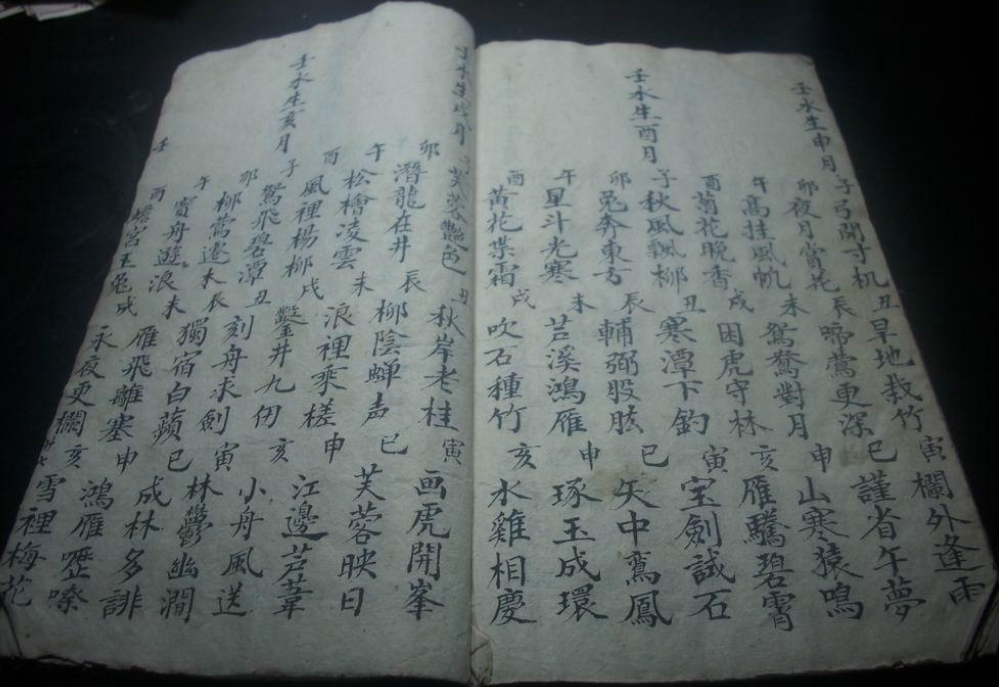 壬水生申月
子弓開寸机 丑旱地栽竹 寅欄外逢雨
卯夜月賞花 辰啼鶯更深 巳謹省午夢
午高挂風帆 未鴛鴦對月 申山寒猿鳴
酉菊花晚香 戌困虎守林 亥雁騰碧霄
壬水生酉月
子秋風飄柳 丑寒潭下釣 寅宝劍試石
卯兔奔東方 辰輔弼股肱 巳矢中鸞鳳
午星斗光寒 未苕溪鴻雁 申琢玉成環
酉黄花喋霜 戌吹石種竹 亥水雞相慶
壬水生戌月
芙蓉艷色 丑秋岸老桂 寅画虎開峯
卯潛龍在井 辰柳陰蟬声 巳芙蓉映日
午松檜凌雲 未浪裡乘槎 申江邊芦葦
酉風裡楊柳 戌鑿井九仞 亥小舟風送
壬水生亥月
子鴛飛碧潭 丑刻舟求劍 寅林鬱幽澗
卯柳鶯遷 辰獨宿白蘋 巳成林多誹
午賓舟遊浪 未雁飛離塞 申鴻雁嚦嚓
酉蟾宮玉兔 戌永夜更欄 亥雪裡梅花
壬